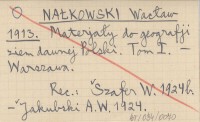 NAŁKOWSKI Wacław
1913. Materyały do geografji
ziem dawnej Polski. Tom I. –
Warszawa.
Rec.: Szafer W. 1924b.
– Jakubski A.W. 1924.